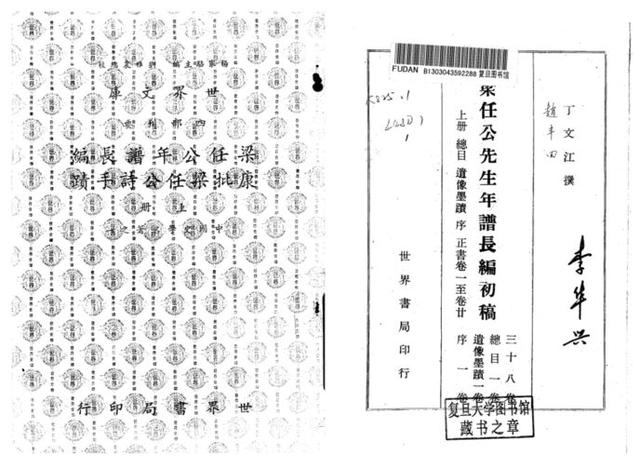 楊家駱主編 劉雅農總校
世界文庫
四部刊要
梁任公年譜長編
康批梁任公詩手蹟
上冊
世界書局印行
FUDAN B1303043592288 复旦图书馆
丁文江撰
趙丰田
李华兴
梁任公先生年譜長編初稿
上册 總目 遺像墨蹟 序 正書卷一至卷廿
三十八卷
總目一卷
遺像墨蹟一卷
序一卷
世界書局印行
复旦大学图书馆
藏书之章